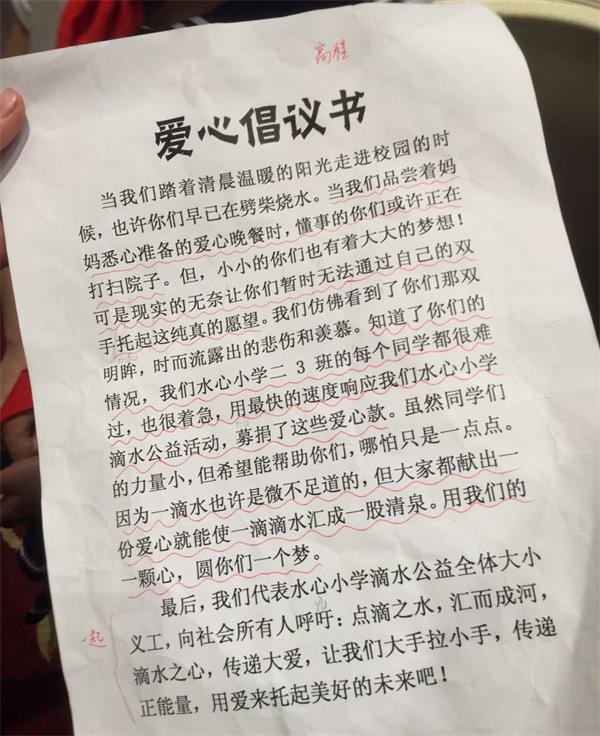 高程
爱心倡议书
当我们踏着清晨温暖的阳光走进校园的时
候，也许你们早已在劈柴烧水。当我们品尝着妈
妈悉心准备的爱心晚餐时，懂事的你们或许正在
打扫院子。但，小小的你们也有着大大的梦想！
可是现实的无奈让你们暂时无法通过自己的双
手托起这纯真的愿望。我们仿佛看到了你们那双
明眸，时而流露出的悲伤和羡慕。知道了你们的
情况，我们水心小学二 3 班的每个同学都很难
过，也很着急，用最快的速度响应我们水心小学
滴水公益活动，募捐了这些爱心款。虽然同学们
的力量小，但希望能帮助你们，哪怕只是一点点。
因为一滴水也许是微不足道的，但大家都献出一
份爱心就能使一滴滴水汇成一股清泉。用我们的
一颗心，圆你们一个梦。
最后，我们代表水心小学滴水公益全体大小
义工，向社会所有人呼吁：点滴之水，汇而成河，
滴水之心，传递大爱，让我们大手拉小手，传递
正能量，用爱来托起美好的未来吧！
一起